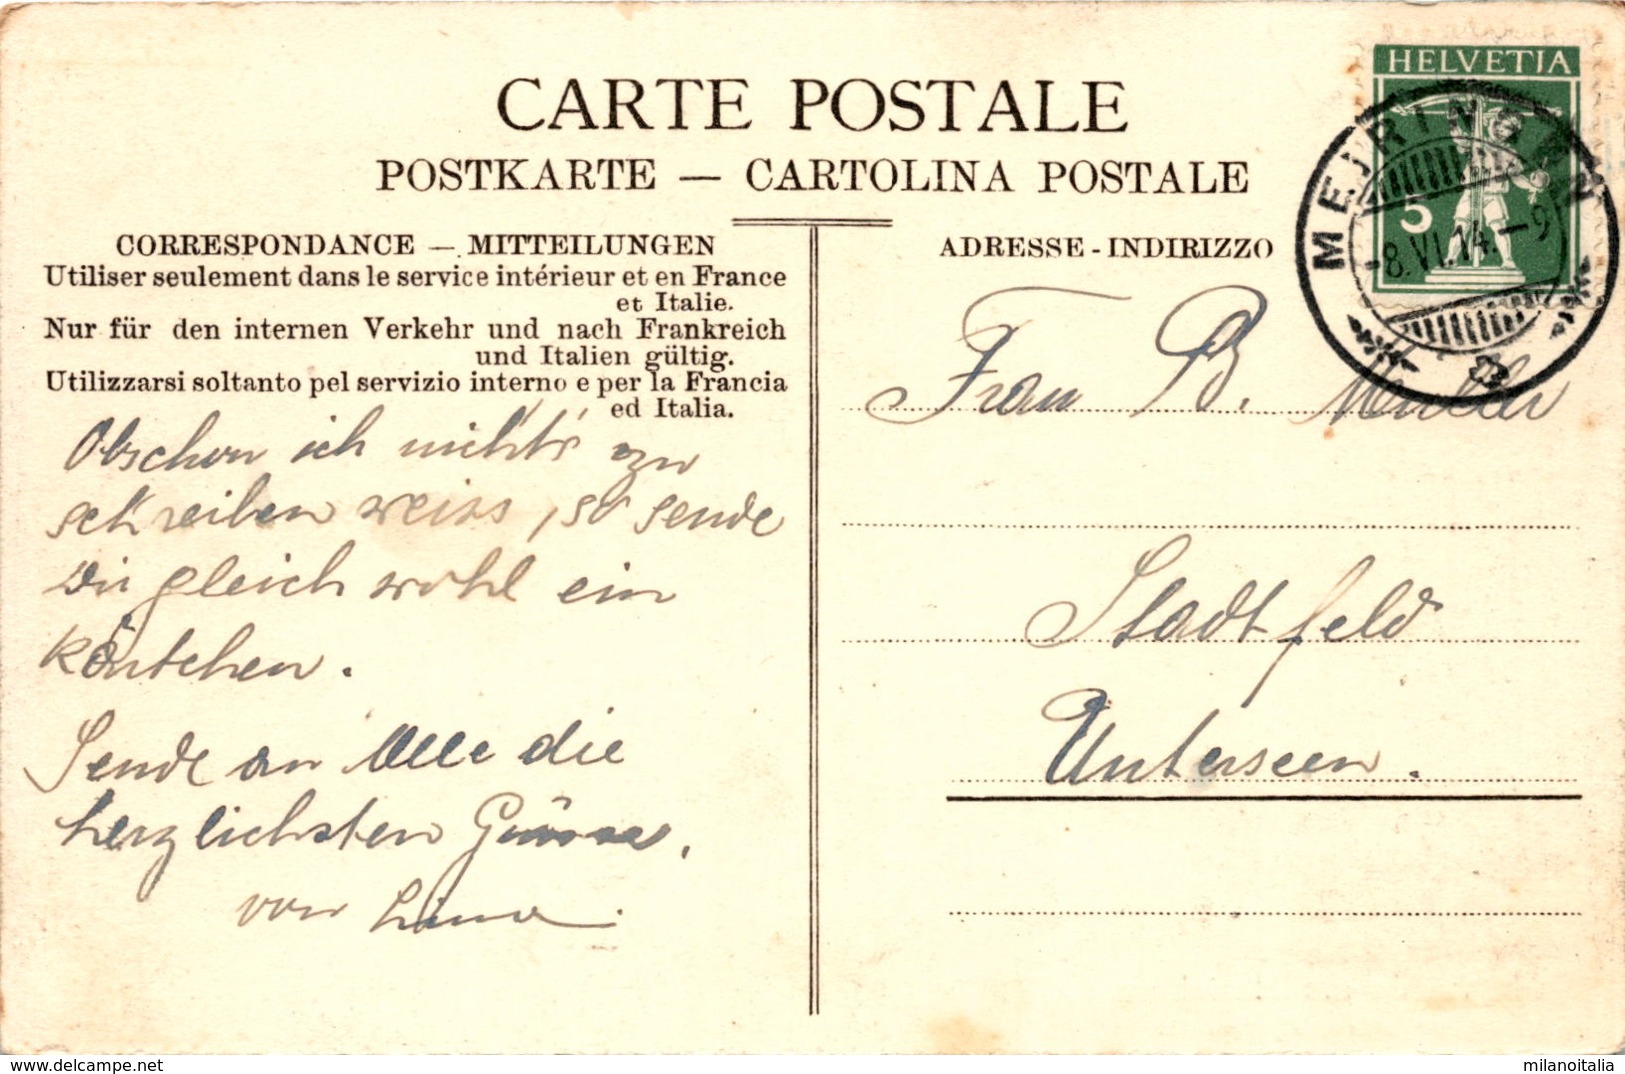 CARTE POSTALE
POSTKARTE — CARTOLINA POSTALE
CORRESPONDANCE — MITTEILUNGEN
Utiliser seulement dans le service intérieur et en France
et Italie.
Nur für den internen Verkehr und nach Frankreich
und Italien gültig.
Utilizzarsi soltanto pel servizio interno e per la Francia
ed Italia.
Obschon ich nichts zu
schreiben weiss, so sende
Dir gleich wohl ein
Kärtchen.
Sende an Alle die
herzlichsten Grüsse,
von Lina.
ADRESSE - INDIRIZZO
Frau B.
Stadtfeld
Unterseen.
HELVETIA
5
MEIRINGEN
-8.VI.14.-9
www.delcampe.net
milanoitalia